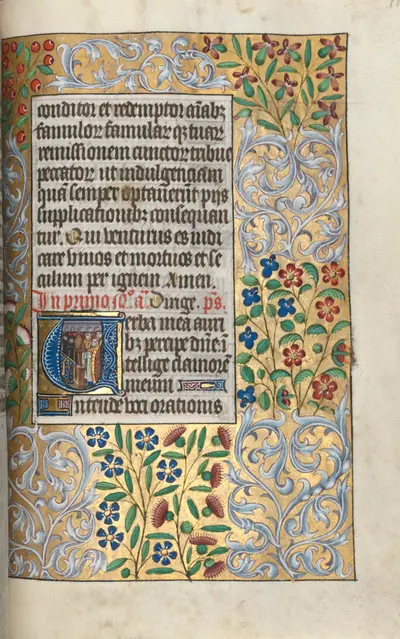 conditor et redemptor aīabꝫ
famulor famular qꝫ tuar
remissionem cunctor tribue
peccator ut indulgenciam
quā semper optauerūt pijs
supplicationibꝫ consequan
tur. Qui venturus es iudi
care viuos et mortuos et se
culum per ignem Amen.
In primo ā. Dirige. ps.
Verba mea auri
bꝫ percipe dn̄e ī
tellige clamorem
meum
Intende voci orationis